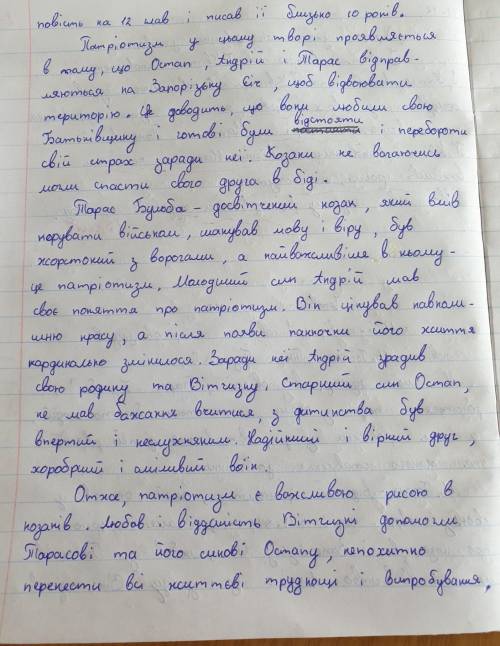 повість на 12 глав і писав її близько 10 років.
Патріотизм у цьому творі проявляється
в тому, що Остап, Андрій і Тарас відправ-
ляються на Запорізьку Січ, щоб відвоювати
територію. Це доводить, що вони любили свою
Батьківщину і готові були відстояти і перебороти
свій страх заради неї. Козаки не вагаючись
могли спасти свого друга в біді.
Тарас Бульба – досвітчений козак, який вмів
керувати військом, шанував мову і віру, був
жорстокий з ворогами, а найважливіше в ньому -
це патріотизм. Молодший син Андрій мав
своє поняття про патріотизм. Він цінував навколи-
шню красу, а після появи панночки його життя
кардинально змінилося. Заради неї Андрій зрадив
свою родину та Вітчизну. Старший син Остап,
не мав бажання вчитися, з дитинства був
впертий і неслухняним. Надійний і вірний друг,
хоробрий і сміливий воїн.
Отже, патріотизм є важливою рисою в
козаків. Любов і відданість Вітчизні допомогли
Тарасові та його синові Остапу, непохитно
перенести всі життєві труднощі і випробування.